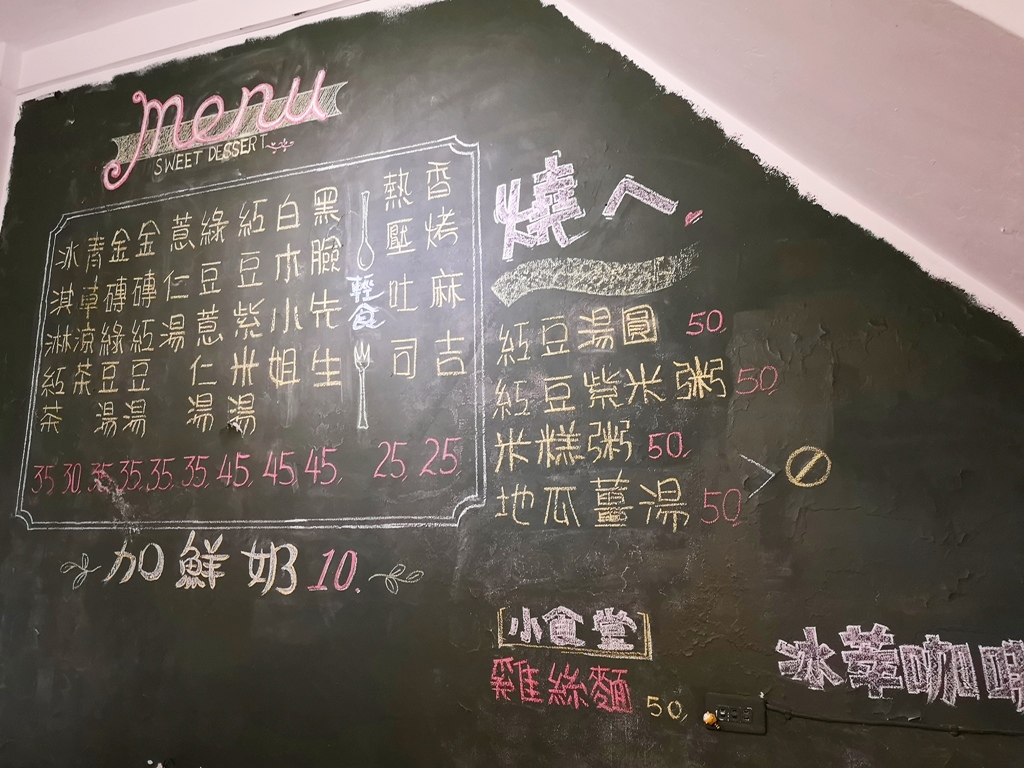 menu
SWEET DESSERT
香烤麻吉 25,
熱壓吐司 25,
輕食
黑臉先生 45,
白木小姐 45,
紅豆紫米湯 45,
綠豆薏仁湯 35,
薏仁湯 35,
金磚紅豆湯 35,
金磚綠豆湯 35,
青草涼茶 30,
冰淇淋紅茶 35,
加鮮奶 10.
燒ㄟ
紅豆湯圓 50,
紅豆紫米粥 50
米糕粥 50,
地瓜薑湯 50,
小食堂
雞絲麵 50,
冰萃咖啡